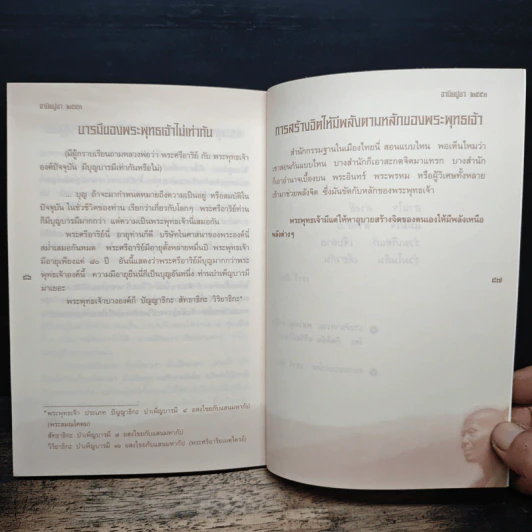 อานิสบูชา ๒๕๕๓
บารมีของพระพุทธเจ้าไม่เท่ากัน
(มีผู้กราบเรียนถามหลวงพ่อว่า พระศรีอารีย์ กับ พระพุทธเจ้า
องค์ปัจจุบัน มีบุญบารมีเท่ากันหรือไม่)
บุญ ถ้าจะมากำหนดหมายถึงความเป็นอยู่ หรือสมบัติใน
ปัจจุบัน ในชั่วชีวิตของท่าน เรียกว่าเกี่ยวกับโลกๆ พระศรีอารีย์ท่าน
ก็มีบุญบารมีมากกว่า แต่ความเป็นพระพุทธเจ้านี่เสมอกัน
พระศรีอารีย์นี่ อายุท่านก็ดี บริษัทในศาสนาของพระองค์นี่
สม่ำเสมอกันหมด พระศรีอารีย์มีอายุตั้งหลายหมื่นปี พระพุทธเจ้า
มีอายุเพียงแค่ ๘๐ ปี อันนี้แสดงว่าพระศรีอารีย์มีบุญมากกว่าพระ
พุทธเจ้าองค์นี้ ความมีอายุยืนนี่ก็เป็นบุญอันหนึ่ง ท่านบำเพ็ญบารมี
มาเยอะ
พระพุทธเจ้าบางองค์ก็ ปัญญาธิกะ สัทธาธิกะ วิริยาธิกะ*
*พระพุทธเจ้า ประเภท ปัญญาธิกะ บำเพ็ญบารมี ๔ อสงไขยกับแสนมหากัป
(พระสมณโคดม)
สัทธาธิกะ บำเพ็ญบารมี ๘ อสงไขยกับแสนมหากัป
วิริยาธิกะ บำเพ็ญบารมี ๑๖ อสงไขยกับแสนมหากัป (พระศรีอาริยเมตไตรย์)
๘๖
อานิสบูชา ๒๕๕๓
การสร้างจิตให้มีพลังตามหลักของพระพุทธเจ้า
สำนักกรรมฐานในเมืองไทยนี่ สอนแบบไหน พอเห็นไหมว่า
เขาสอนกันแบบไหน บางสำนักก็เอาสะกดจิตมาแทรก บางสำนัก
ก็เอาอำนาจเบื้องบน พระอินทร์ พระพรหม หรือผู้วิเศษทั้งหลาย
เข้ามาช่วยพลังจิต ซึ่งมันขัดกับหลักของพระพุทธเจ้า
พระพุทธเจ้ามีแต่ให้หาอุบายสร้างจิตของตนเองให้มีพลังเหนือ
พลังต่างๆ
๘๗